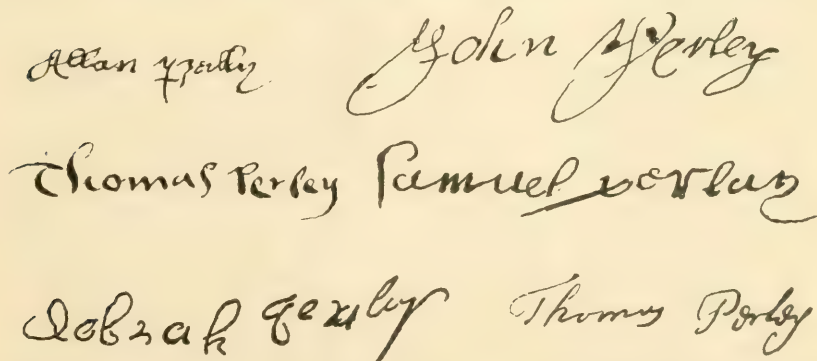 Allan perlly John Perley
Thomas Perley Samuel perlay
Thomas Perley